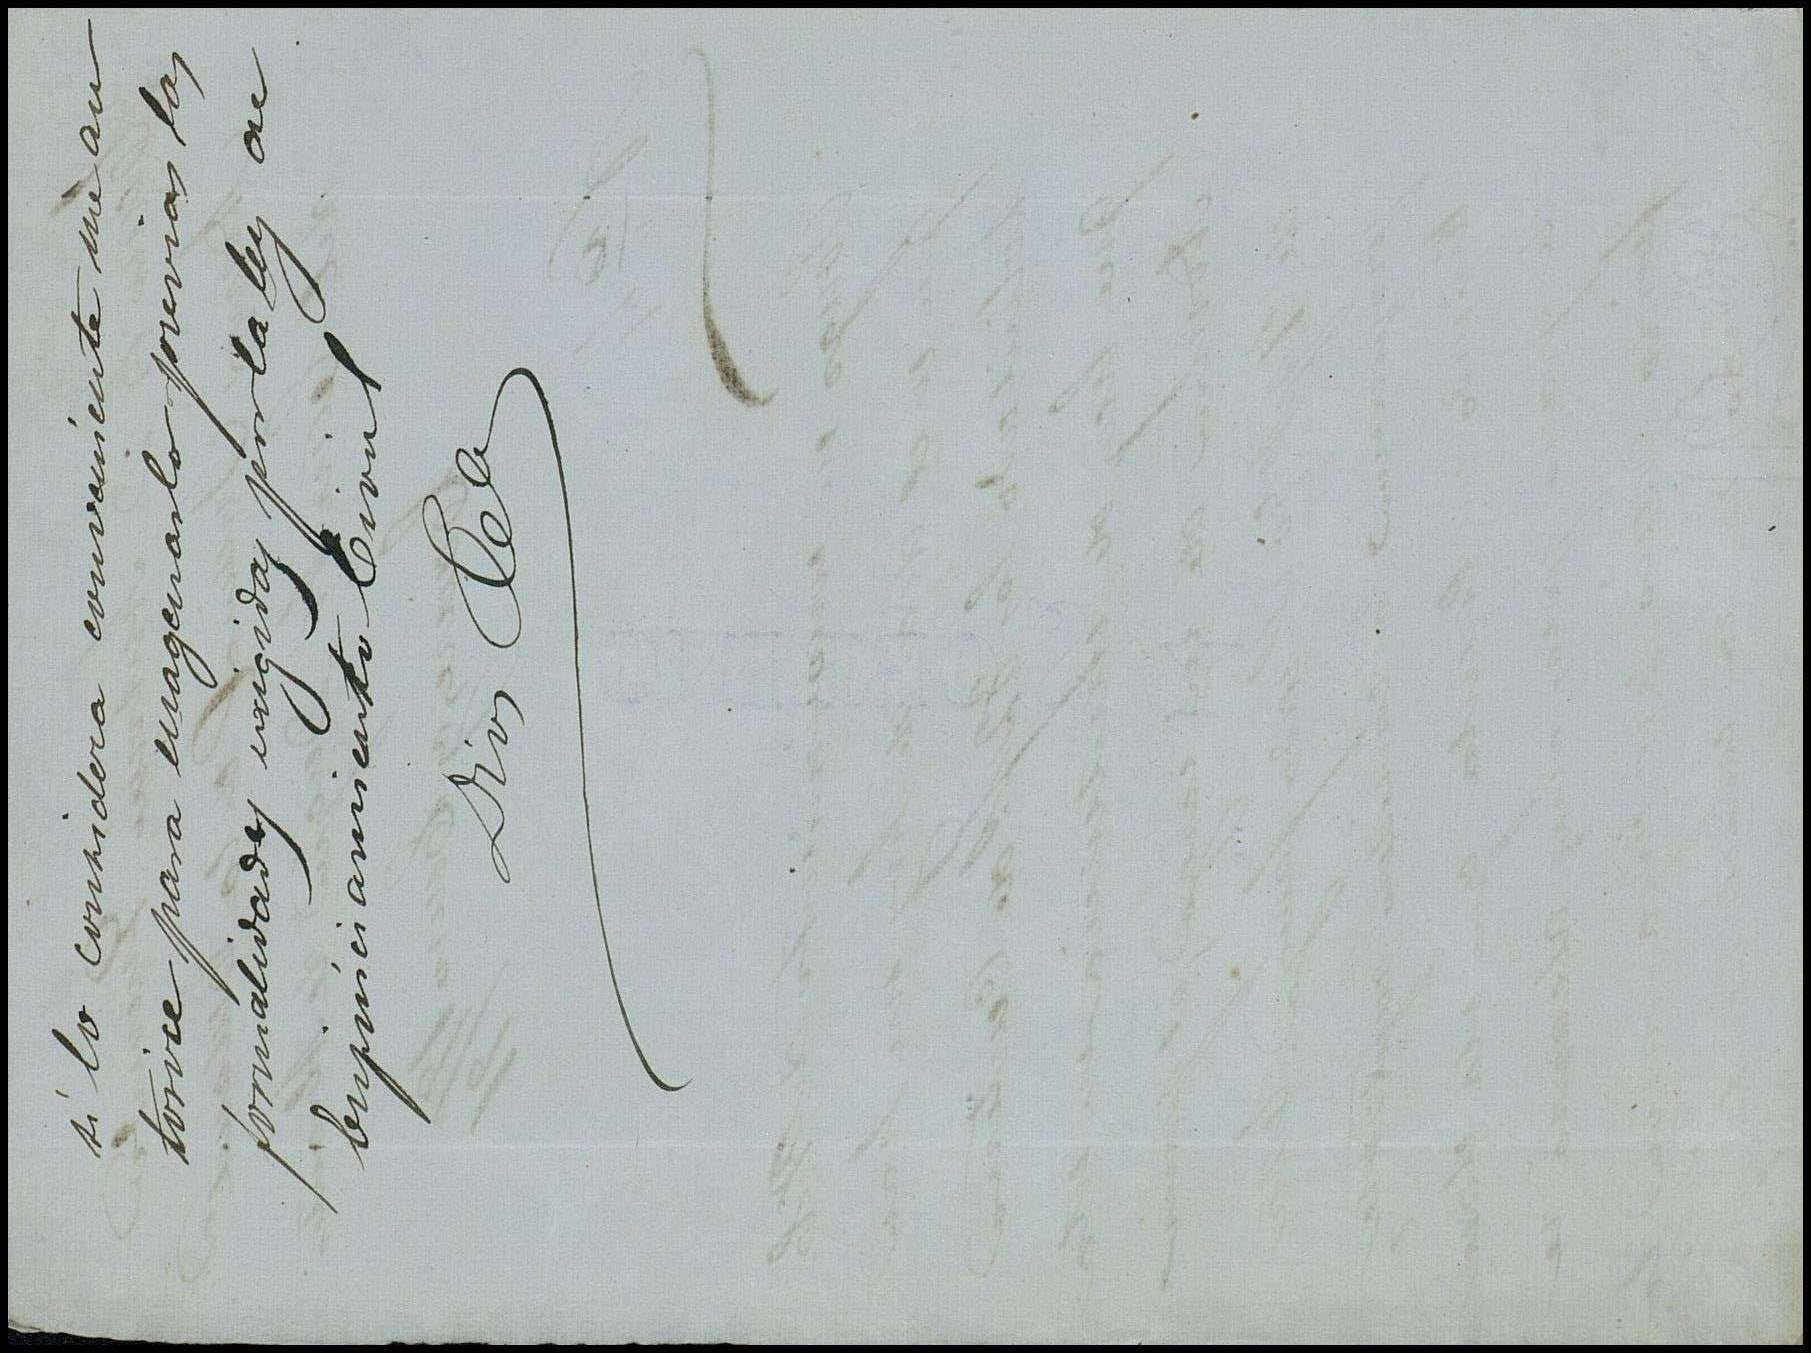 si lo considera conveniente me au
torice para enagenarlo previas las
formalidades exigidas por la ley de
Enjuiciamiento Civil
Dios &